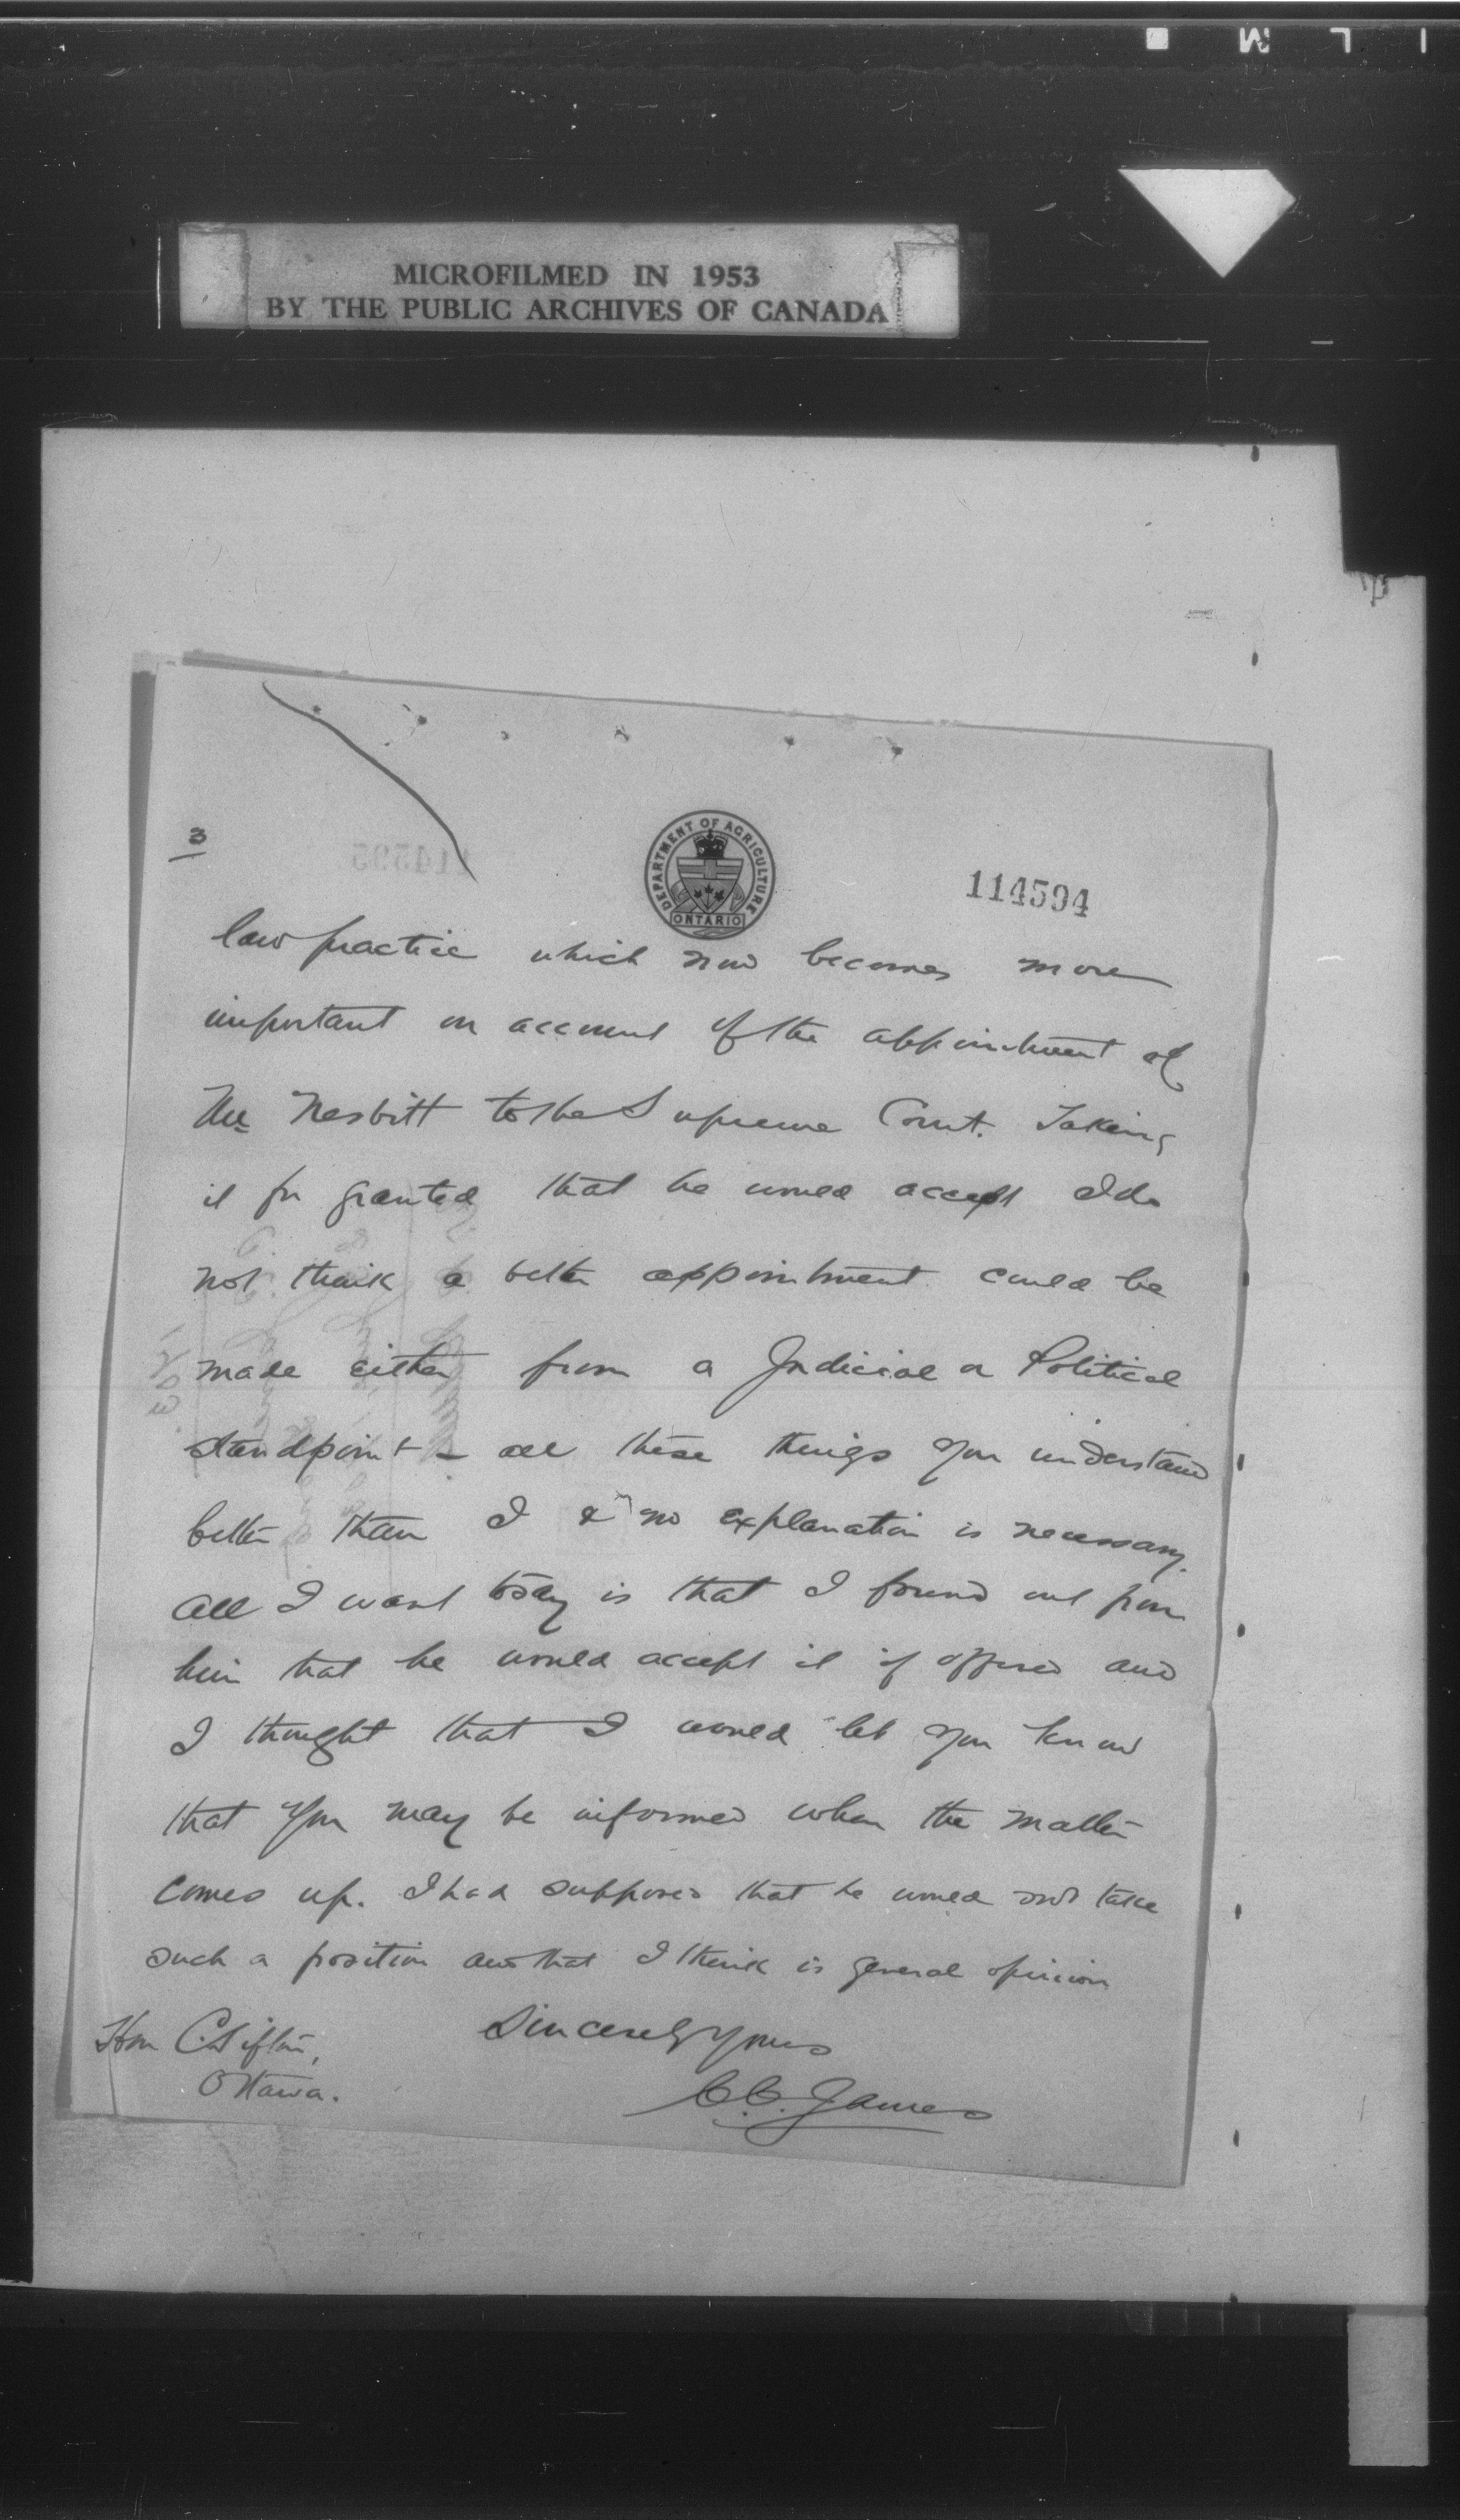 MICROFILMED IN 1953
BY THE PUBLIC ARCHIVES OF CANADA
3
DEPARTMENT OF AGRICULTURE
ONTARIO
114594
law practice which now becomes more
important on account of the appointment of
Mr Nesbitt to the Supreme Court. Taking
it for granted that he would accept I do
not think a better appointment could be
made either from a Judicial or Political
standpoint - all these things you understand
better than I & no explanation is necessary.
All I want today is that I found out from
him that he would accept it if offered and
I thought that I would let you know
that you may be informed when the matter
comes up. I had supposed that he would not take
such a position and that I think is general opinion
Sincerely yours
C.C. James
Hon C. Sifton,
Ottawa.